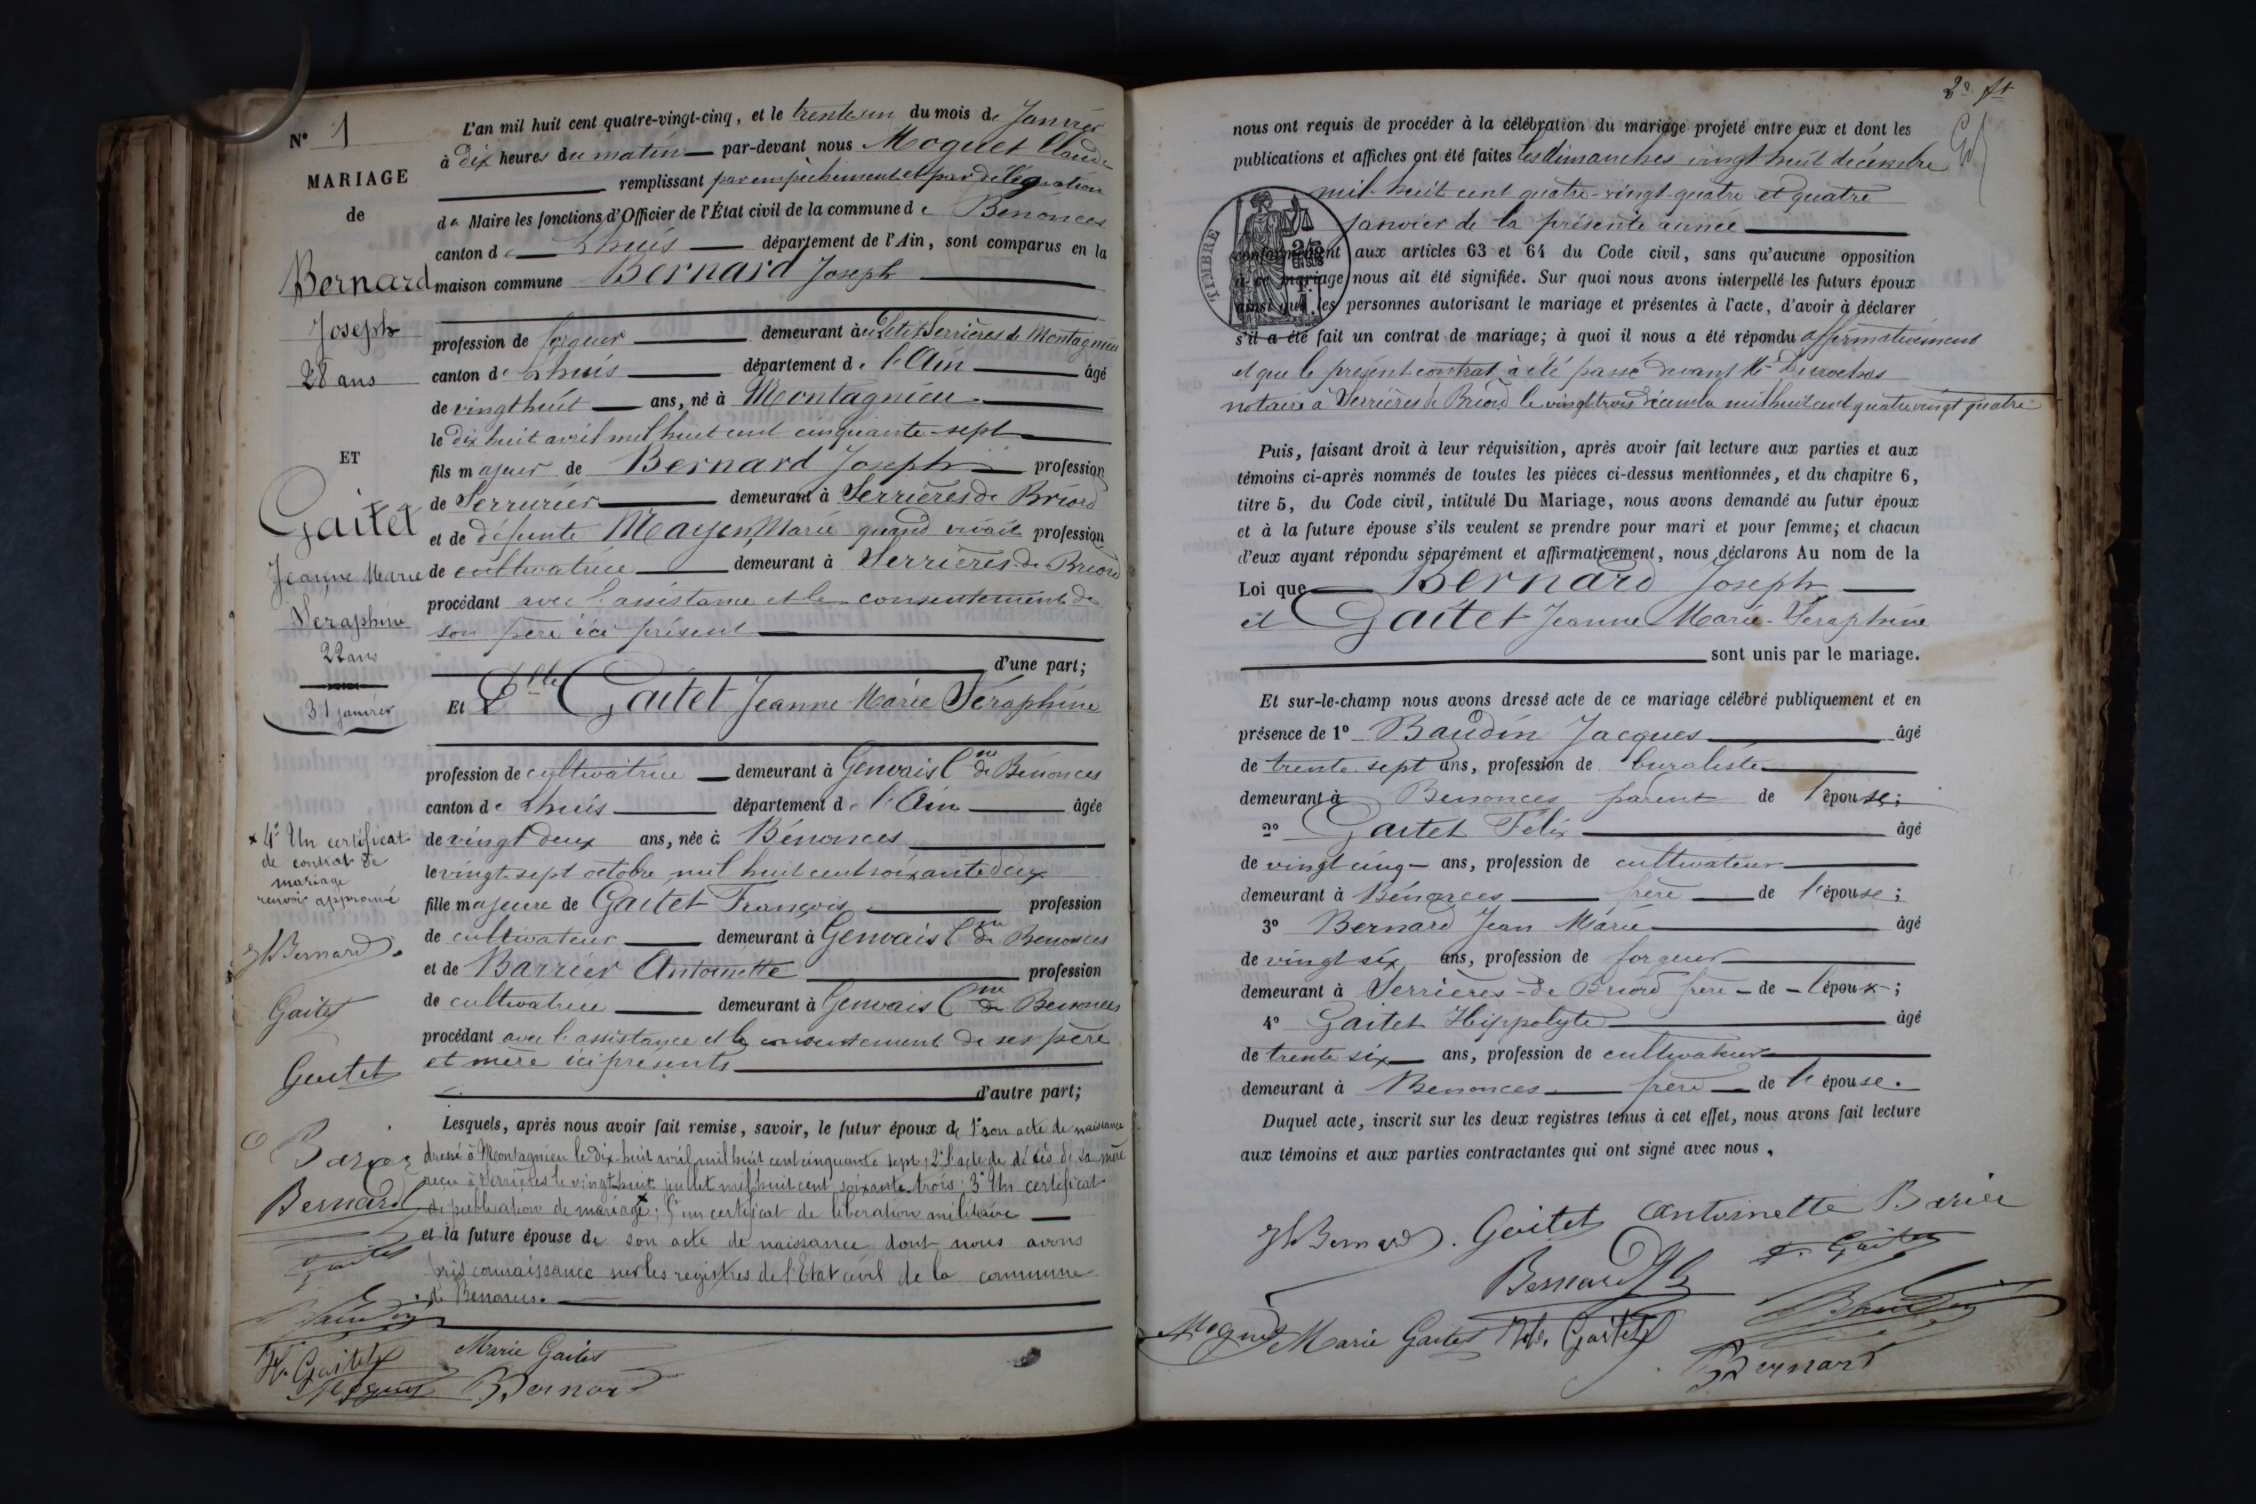 N° 1
MARIAGE
de
Bernard
Joseph
28 ans
ET
Gaitet
Jeanne Marie
Séraphine
22 ans
31 janvier
L'an mil huit cent quatre-vingt-cinq, et le trente un du mois de Janvier
à dix heures du matin par-devant nous Moguet Claude
remplissant par empêchement et par délégation
de Maire les fonctions d'Officier de l'État civil de la commune de Bénonces
canton de Lhuis département de l'Ain, sont comparus en la
maison commune Bernard Joseph
profession de forgeur demeurant à Serrières de Montagnieu
canton de Lhuis département de l'Ain âgé
de vingt huit ans, né à Montagnieu
le dix huit avril mil huit cent cinquante-sept
fils majeur de Bernard Joseph profession
de Serrurier demeurant à Serrières de Briord
et de défunte Mayen Marie quand vivait profession
de cultivatrice demeurant à Serrières de Briord
procédant avec l'assistance et le consentement de
son père ici présent
d'une part;
Et Dlle Gaitet Jeanne Marie Séraphine
profession de cultivatrice demeurant à Gervais Cne de Bénonces
canton de Lhuis département de l'Ain âgée
de vingt deux ans, née à Bénonces
le vingt-sept octobre mil huit cent soixante deux
fille majeure de Gaitet François profession
de cultivateur demeurant à Gervais Cne de Bénonces
et de Barrier Antoinette profession
de cultivatrice demeurant à Gervais Cne de Bénonces
procédant avec l'assistance et le consentement de ses père
et mère ici présents
d'autre part;
Lesquels, après nous avoir fait remise, savoir, le futur époux de 1° son acte de naissance
dressé à Montagnieu le dix-huit avril mil huit cent cinquante sept; 2° l'acte de décès de sa mère
reçu à Serrières le vingt huit juillet mil huit cent soixante trois; 3° Un certificat
de publication de mariage x; 5° un certificat de libération militaire
et la future épouse de son acte de naissance dont nous avons
pris connaissance sur les registres de l'Etat civil de la commune
de Bénonces.
x 4° Un certificat
de contrat de
mariage
renvoi approuvé
Jh Bernard
Gaitet
Gaitet
Barier
Bernard
Gaitet
Baudin
H. Gaitet
Moguet
Marie Gaitet
Bernard
2e ft
nous ont requis de procéder à la célébration du mariage projeté entre eux et dont les
publications et affiches ont été faites les dimanches vingt huit décembre
mil huit cent quatre-vingt-quatre et quatre
janvier de la présente année
TIMBRE
conformément aux articles 63 et 64 du Code civil, sans qu'aucune opposition
à ce mariage nous ait été signifiée. Sur quoi nous avons interpellé les futurs époux
ainsi que les personnes autorisant le mariage et présentes à l'acte, d'avoir à déclarer
s'il a été fait un contrat de mariage; à quoi il nous a été répondu affirmativement
et que le présent contrat à été passé devant Me
notaire à Serrières de Briord le vingt trois décembre mil huit cent quatre vingt quatre
Puis, faisant droit à leur réquisition, après avoir fait lecture aux parties et aux
témoins ci-après nommés de toutes les pièces ci-dessus mentionnées, et du chapitre 6,
titre 5, du Code civil, intitulé Du Mariage, nous avons demandé au futur époux
et à la future épouse s'ils veulent se prendre pour mari et pour femme; et chacun
d'eux ayant répondu séparément et affirmativement, nous déclarons Au nom de la
Loi que Bernard Joseph
et Gaitet Jeanne Marie-Séraphine
sont unis par le mariage.
Et sur-le-champ nous avons dressé acte de ce mariage célébré publiquement et en
présence de 1° Baudin Jacques âgé
de trente sept ans, profession de buraliste
demeurant à Benonces parent de l'épouse;
2° Gaitet Félix âgé
de vingt cinq ans, profession de cultivateur
demeurant à Bénonces frère de l'épouse;
3° Bernard Jean Marie âgé
de vingt six ans, profession de forgeur
demeurant à Serrières-de Briord frère de l'époux;
4° Gaitet Hippolyte âgé
de trente six ans, profession de cultivateur
demeurant à Benonces frère de l'épouse.
Duquel acte, inscrit sur les deux registres tenus à cet effet, nous avons fait lecture
aux témoins et aux parties contractantes qui ont signé avec nous.
Jh Bernard. Gaitet Antoinette Barier
Bernard F. Gaitet
Moguet Marie Gaitet H. Gaitet Baudin
Bernard